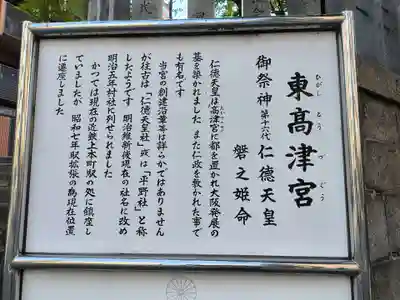 東高津宮
ひがし こうづ ぐう
御祭神 第十六代 仁徳天皇
磐之姫命
仁徳天皇は高津宮に都を置かれ大阪発展の
基を築かれました また仁政を敷かれた事で
も有名です
当宮の創建沿革等は詳らかではありません
が往古は「仁徳天皇社」或は「平野社」と称
したようです 明治維新後現在の社名に改め
明治五年村社に列せられました
かつては現在の近鉄上本町駅の処に鎮座し
ていましたが 昭和七年駅拡張の為現在位置
に遷座しました